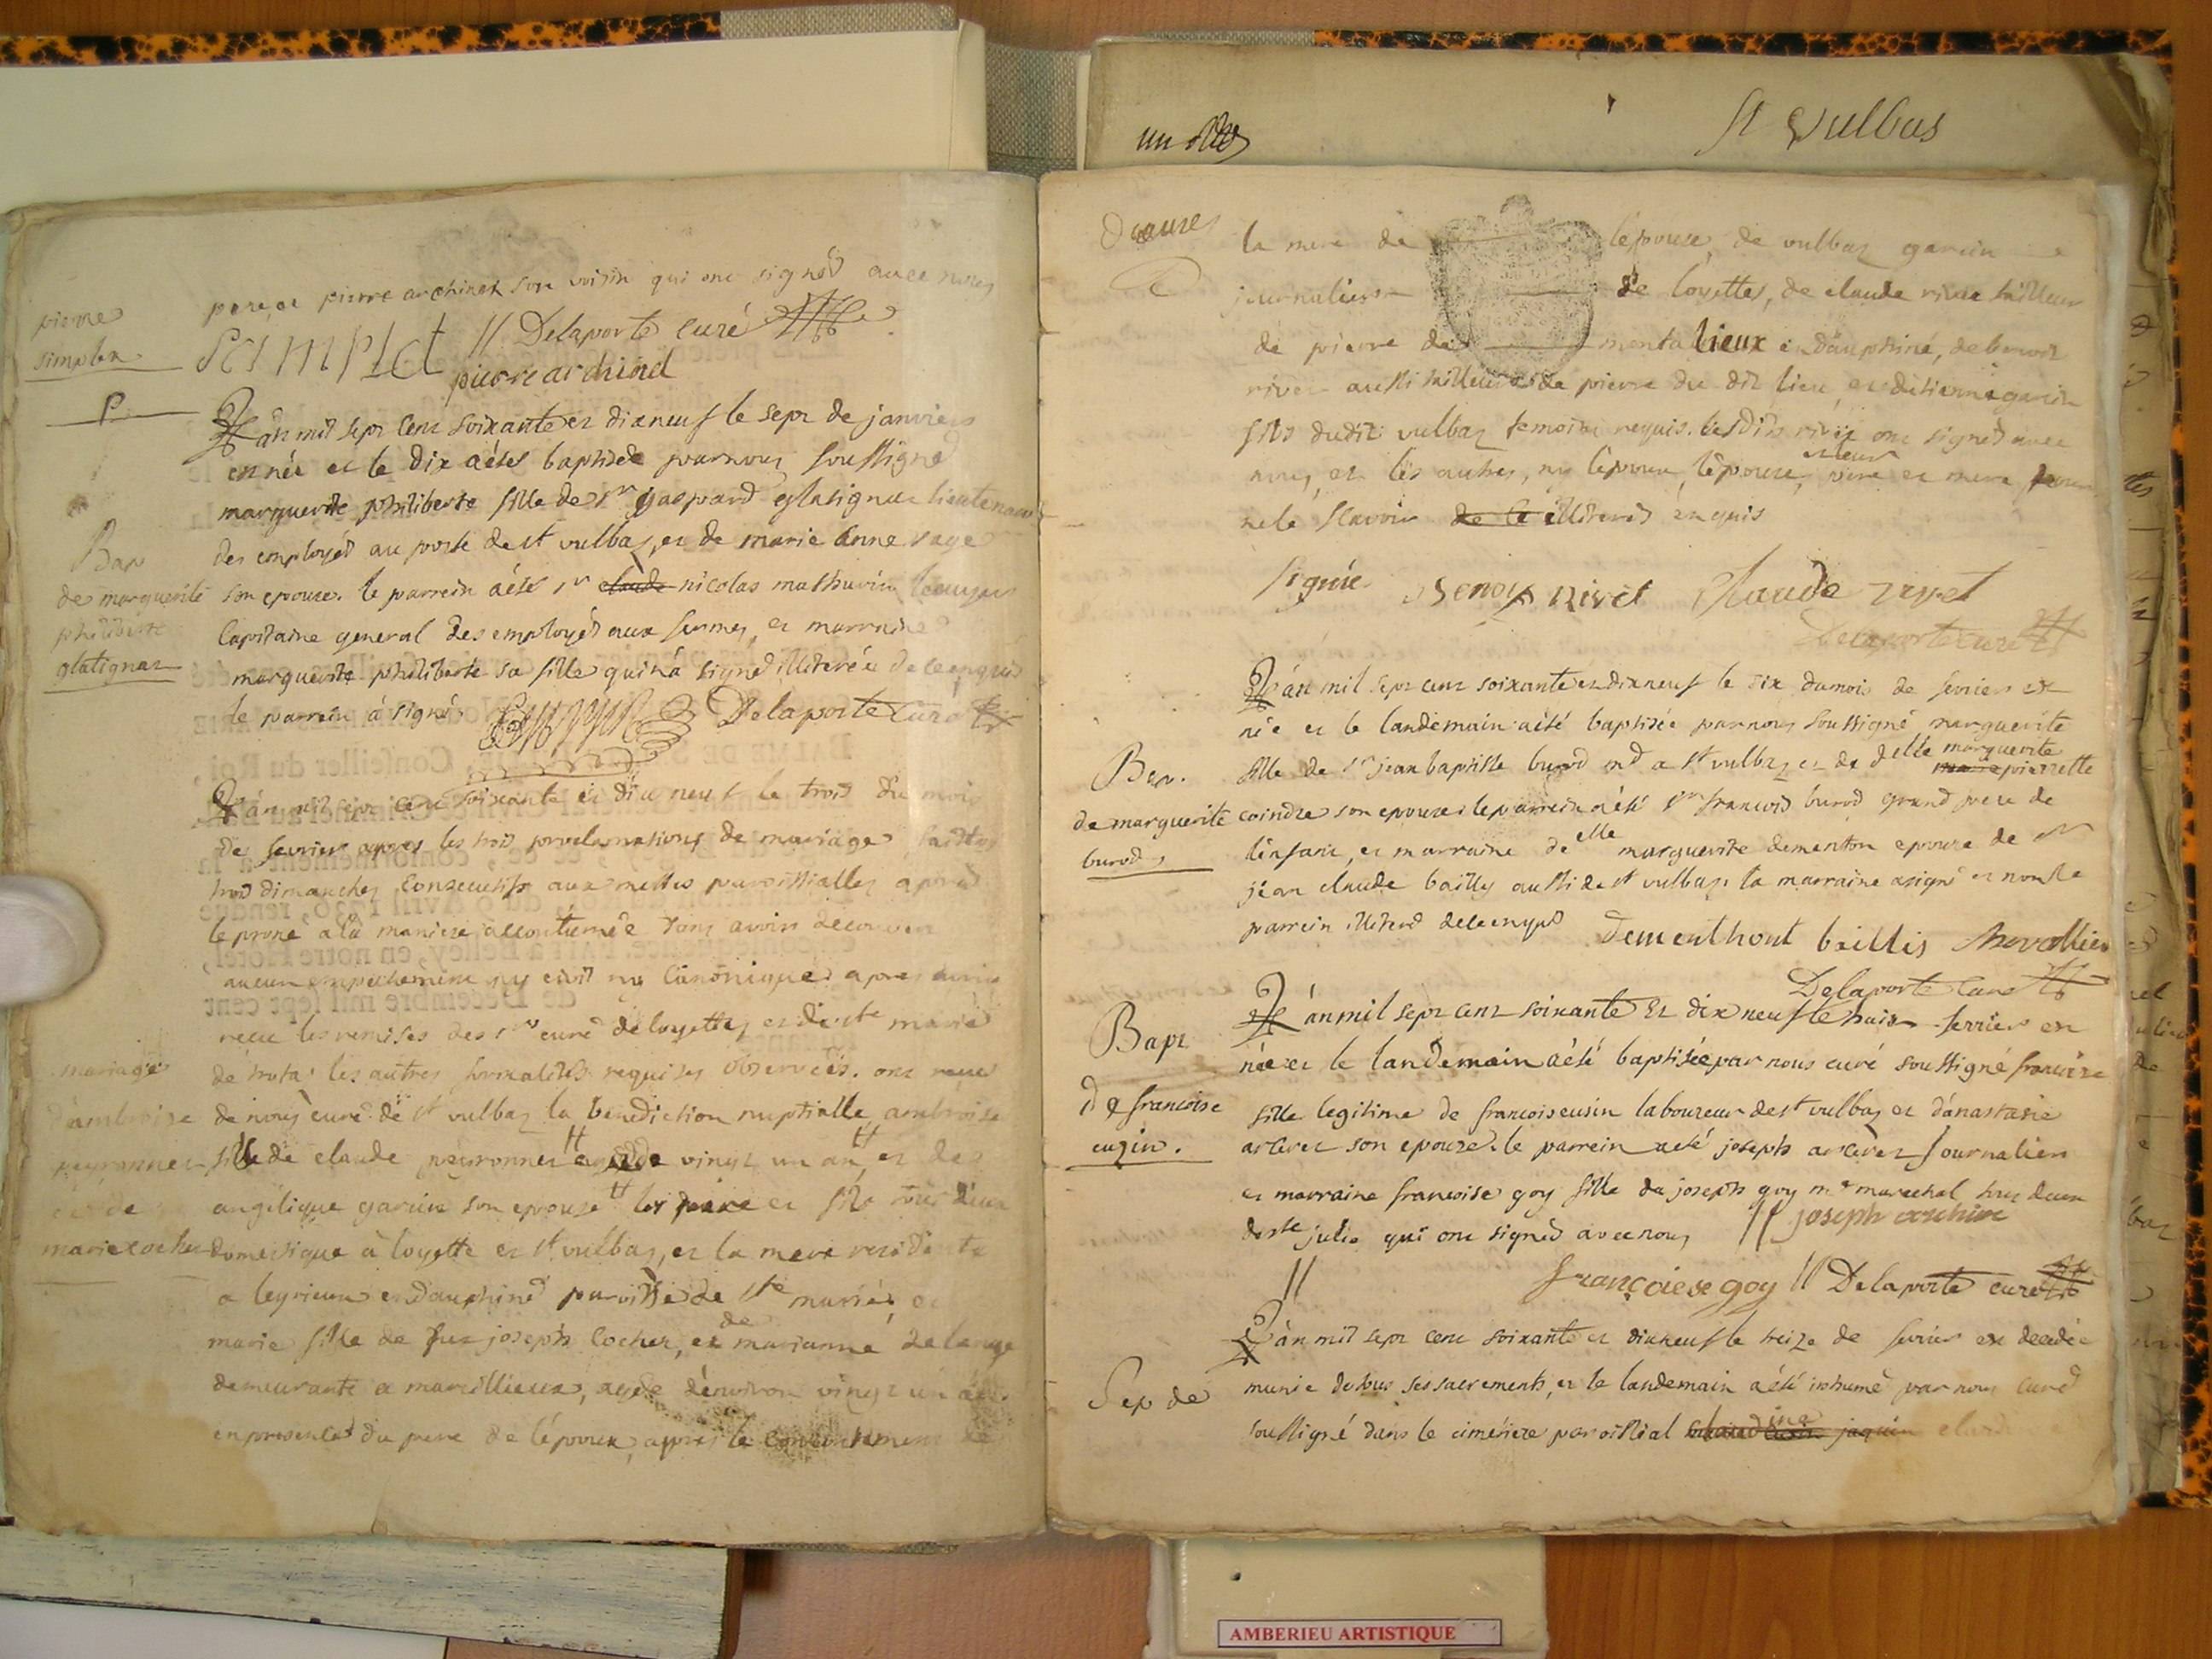 pere, et pierre archinet son voisin qui ont signés avec nous
pierre
simplex
Simplet // Delaporte curé
pierre archined
L'an mil sept cent soixante et dixneuf le sept de janvier
est née et le dix aétés baptisée par nous soussigné
marguerite philiberte fille de sr gaspard glatignat lieutenant
des employés au poste de st vulbas, et de marie anne sage
Bap
de marguerite
philiberte
glatignat
son epouse. le parrein aétés sr claude nicolas mathurin
Capitaine general des employés aux fermes, et marraine
marguerite philiberte sa fille qui n'a signé illiterée de ce enquis
le parrein à signé Delaporte curé
L'an mil sept cent soixante et dix neuf le trois du mois
de fevrier apres les trois proclamations de mariage faittes
trois dimanches consecutifs aux messes paroissialles apres
le prone a la maniere accoutumée sans avoir decouvert
aucun empechement ny civil ny canonique apres avoir
recu les remises des srs curé de loyettes et de ste marie
mariage
d'ambroise
peyronnet
et de
marie cochet
de les autres formalités requises observées. ont reçu
de nous curé de st vulbas la benediction nuptialle ambroise
fils de claude peyronnet agé de vingt un an, et de
angélique garcin son epouse les pere et fils tous deux
domestique à loyette et st vulbas, et la mere residante
a leyrieux en dauphiné paroisse de ste marie, et
marie fille de feu joseph cochet, et de marianne delange
demeurante a marcillieux, agée d'environ vingt un an
en presence du pere de l'époux, apprés le consentement de
un
St Vulbas
la mere de l'épouse, de vulbas garcin
journalier de loyettes, de claude rivet tailleur
de pierre de montalieux en dauphiné, de benoit
rivet aussi tailleur de pierre du dit lieu, et d'étienne garcin
fils dudit vulbas temoins requis. lesdits rivet ont signés avec
nous, et les autres, ny l'époux, l'épouse, pere et mere pour
ne le scavoir de ce illiterés enquis
signée Benoit Rivet Claude rivet
Delaporte curé
L'an mil sept cent soixante et dixneuf le six du mois de fevrier est
née et le landemain aété baptisée par nous soussigné marguerite
Bap.
de marguerite
burod
fille de sr jean baptiste burod md a st vulbas et de delle marguerite pierrette
coindre son epouse. le parrein aété sr francois burod grand pere de
l'enfant, et marraine delle marguerite dementhon epouse de sr
jean claude bailly aussi de st vulbas. la marraine a signé et non le
parrein illiteré de ce enquis Dementhont baillis Chevallier
Delaporte curé
Bapt
de francoise
cuzin.
L'an mil sept cent soixante et dix neuf le huit fevrier est
née et le landemain aété baptisée par nous curé soussigné francoise
fille legitime de francois cusin laboureur de st vulbas et d'anastasie
arceret son epouse. le parrein aété joseph arceret journalier
et marraine francoise goy fille de joseph goy me marechal tous deux
de ste julie qui ont signés avec nous // joseph
// françoiese goy // Delaporte curé
L'an mil sept cent soixante et dixneuf le treize de fevrier est decedée
Sep de
munie de tous ses sacrements, et le landemain a été inhumé par nous curé
soussigné dans le cimétiere paroissial claudine jaquin
AMBERIEU ARTISTIQUE